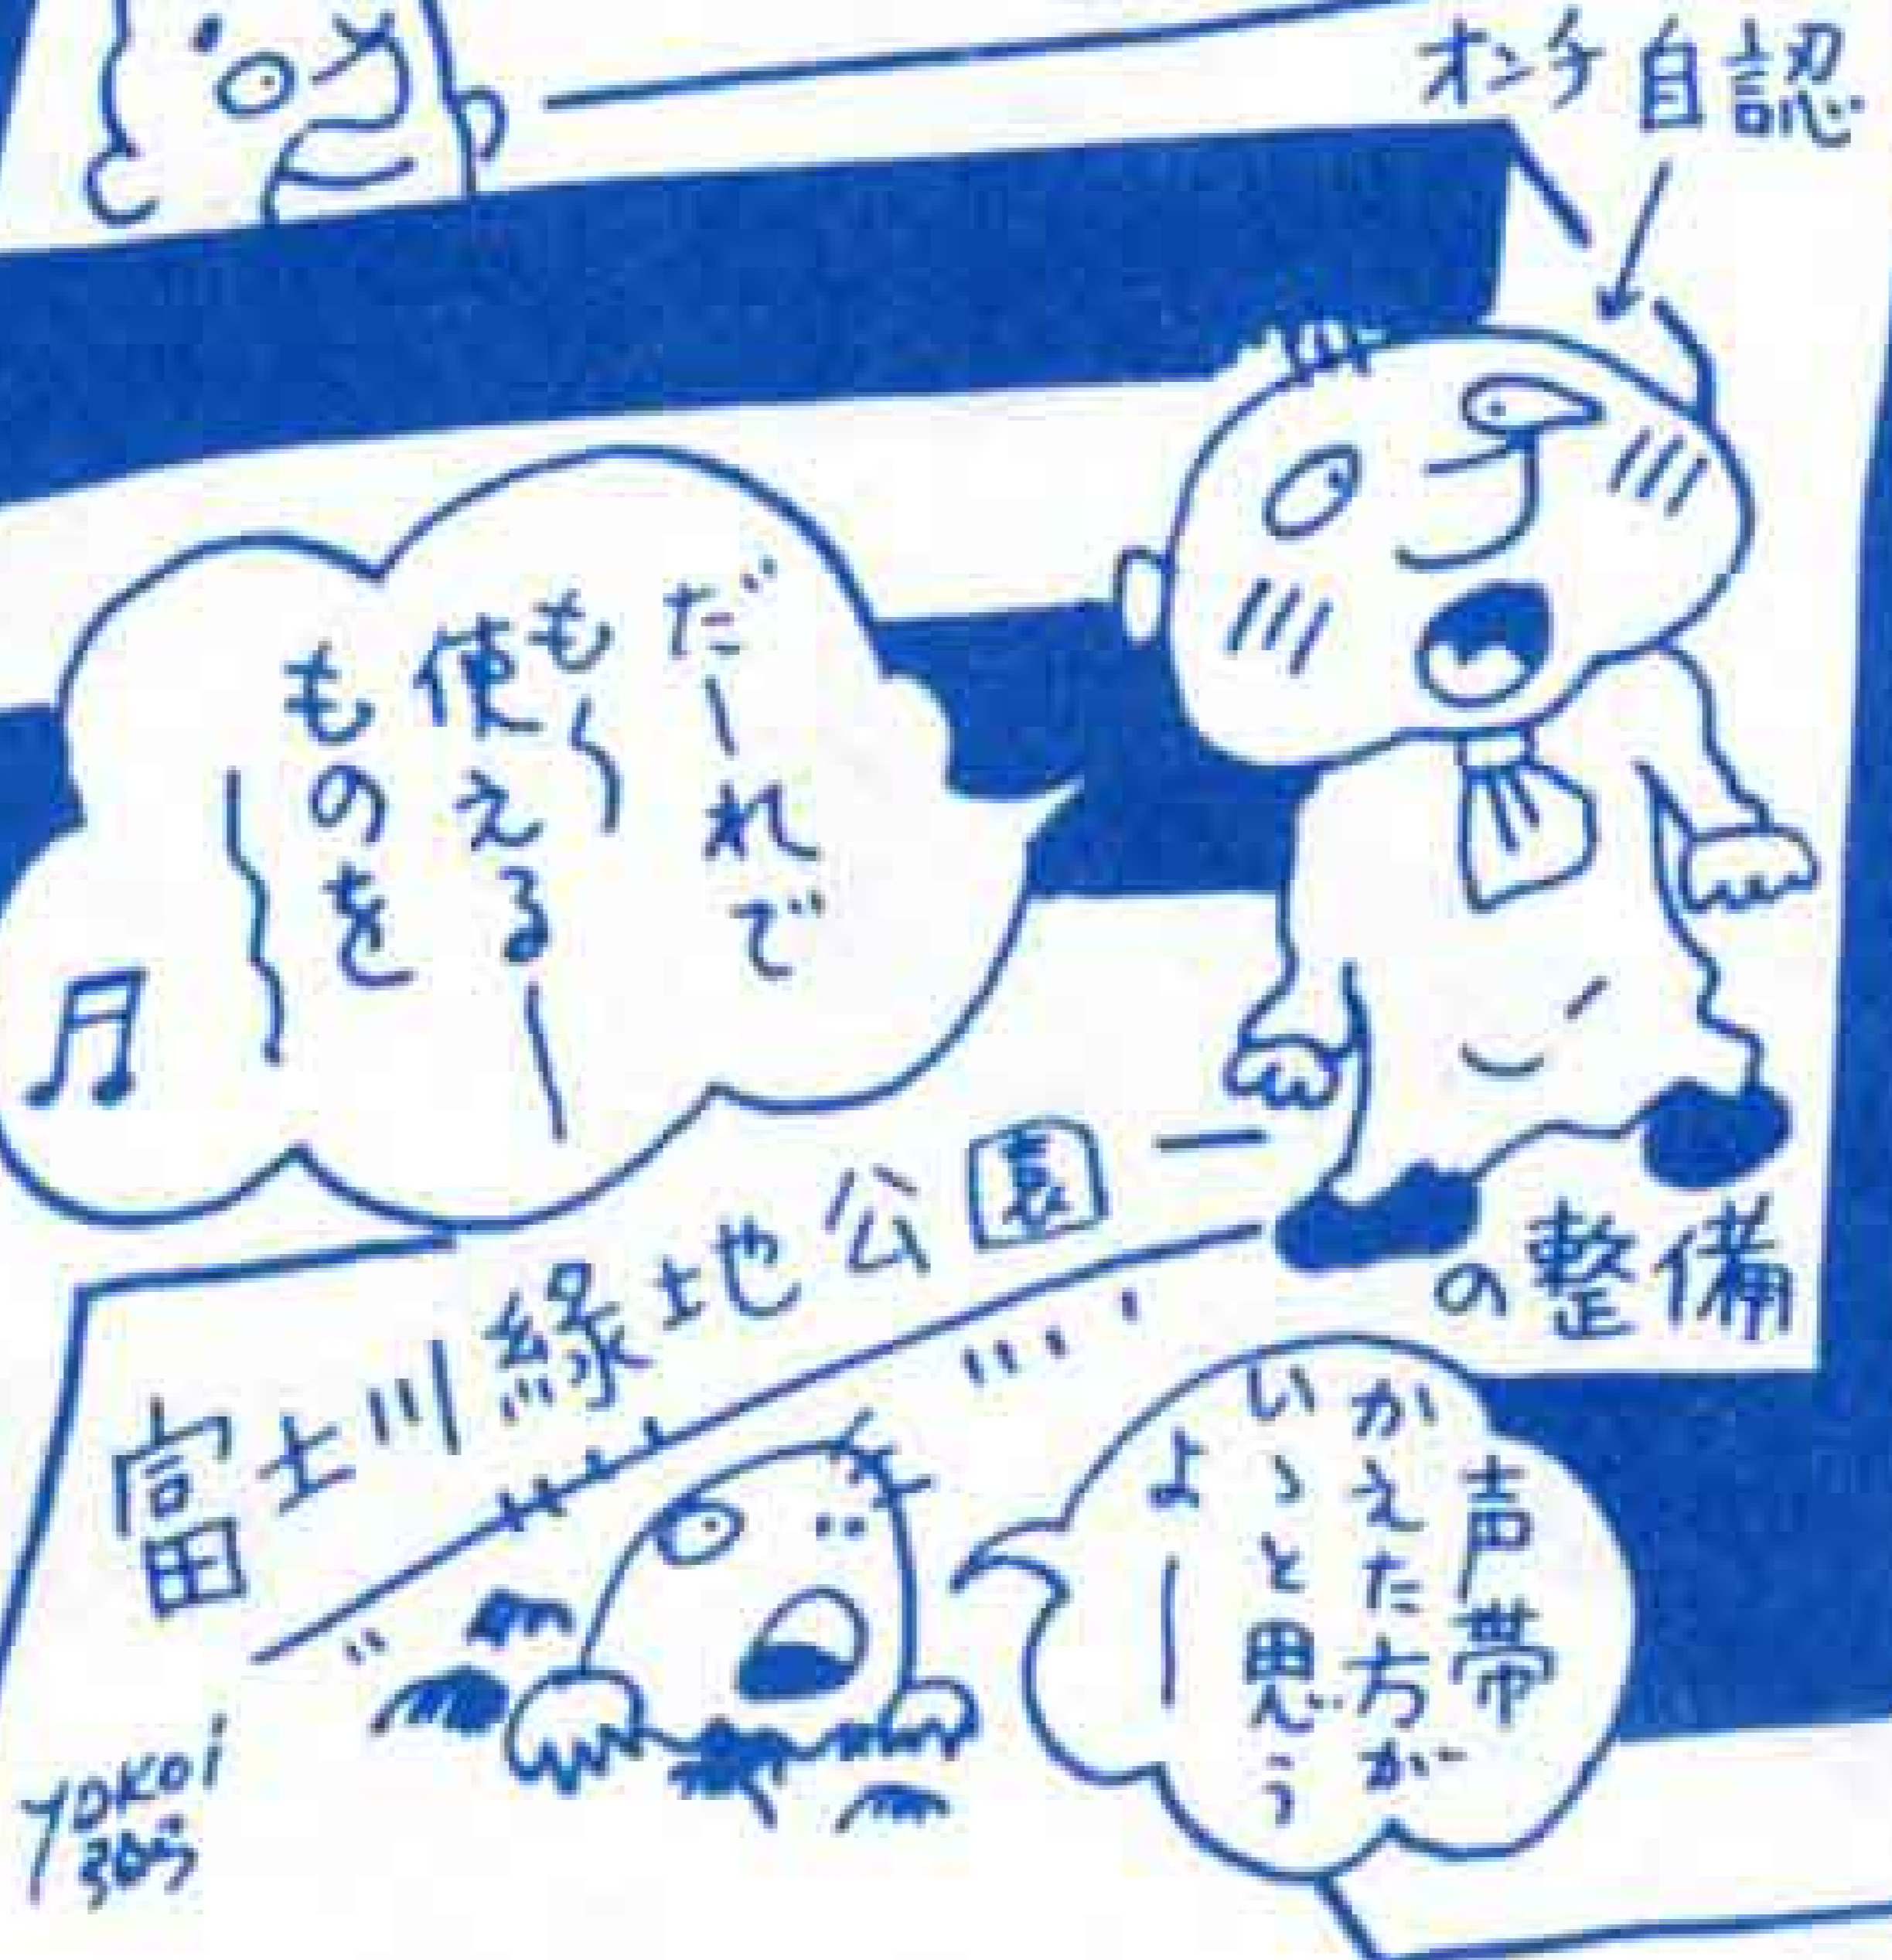 オンチ自認
だーれで
も〜
使えるー
ものを〜
富士川緑地公園の整備
声帯
かえた方が
いゝと思う
よー
YOKOI